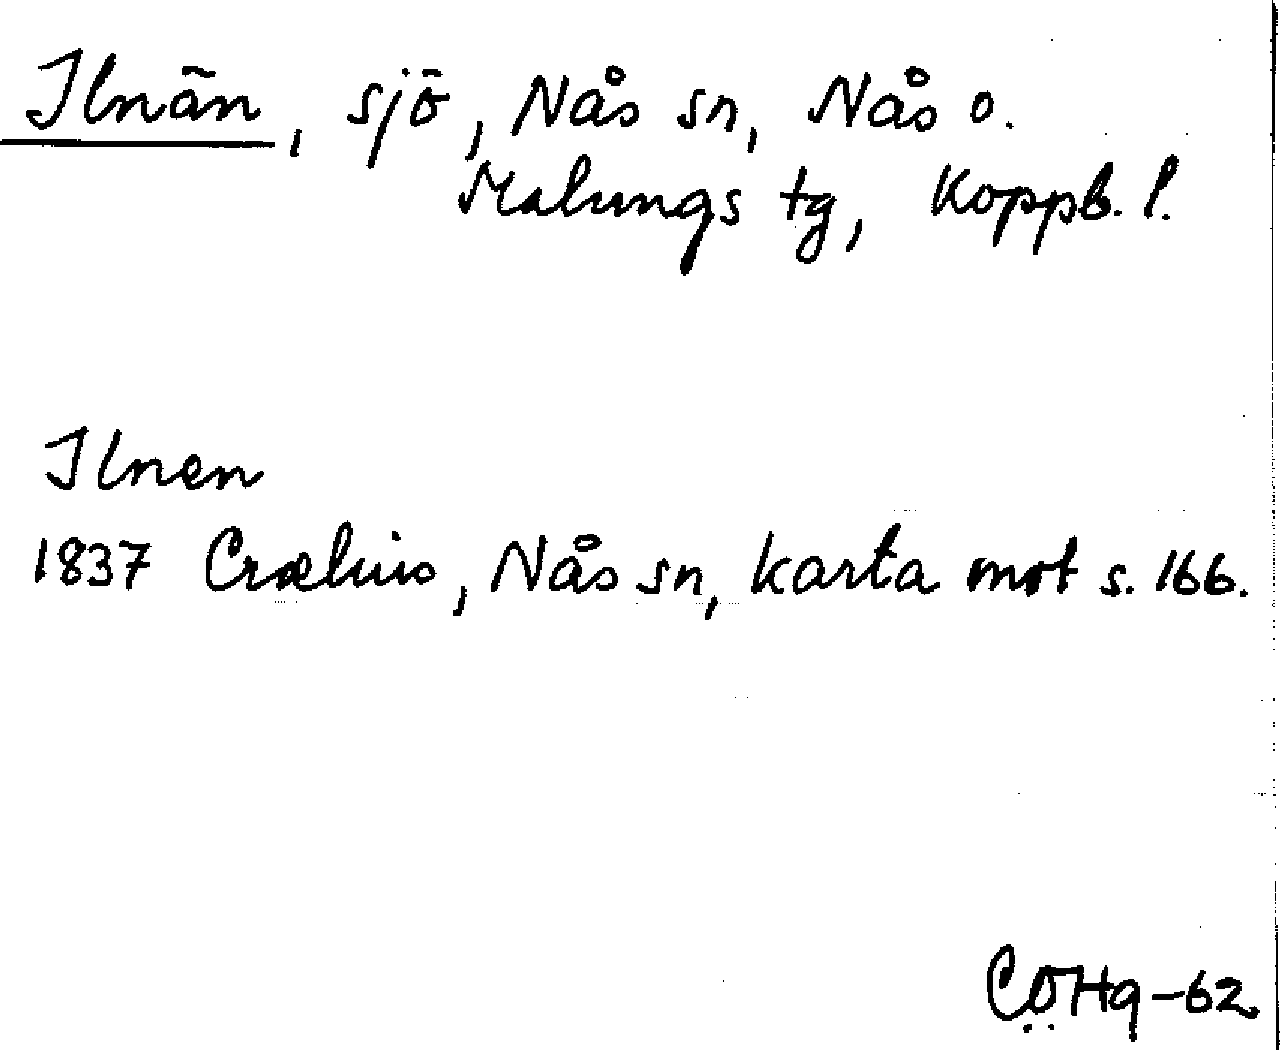 Ilnän, sjö, Nås sn, Nås o.
Malungs tg, Koppb. l.
Ilnen
1837 Crælius, Nås sn, karta mot s. 166.
CÖHg-62